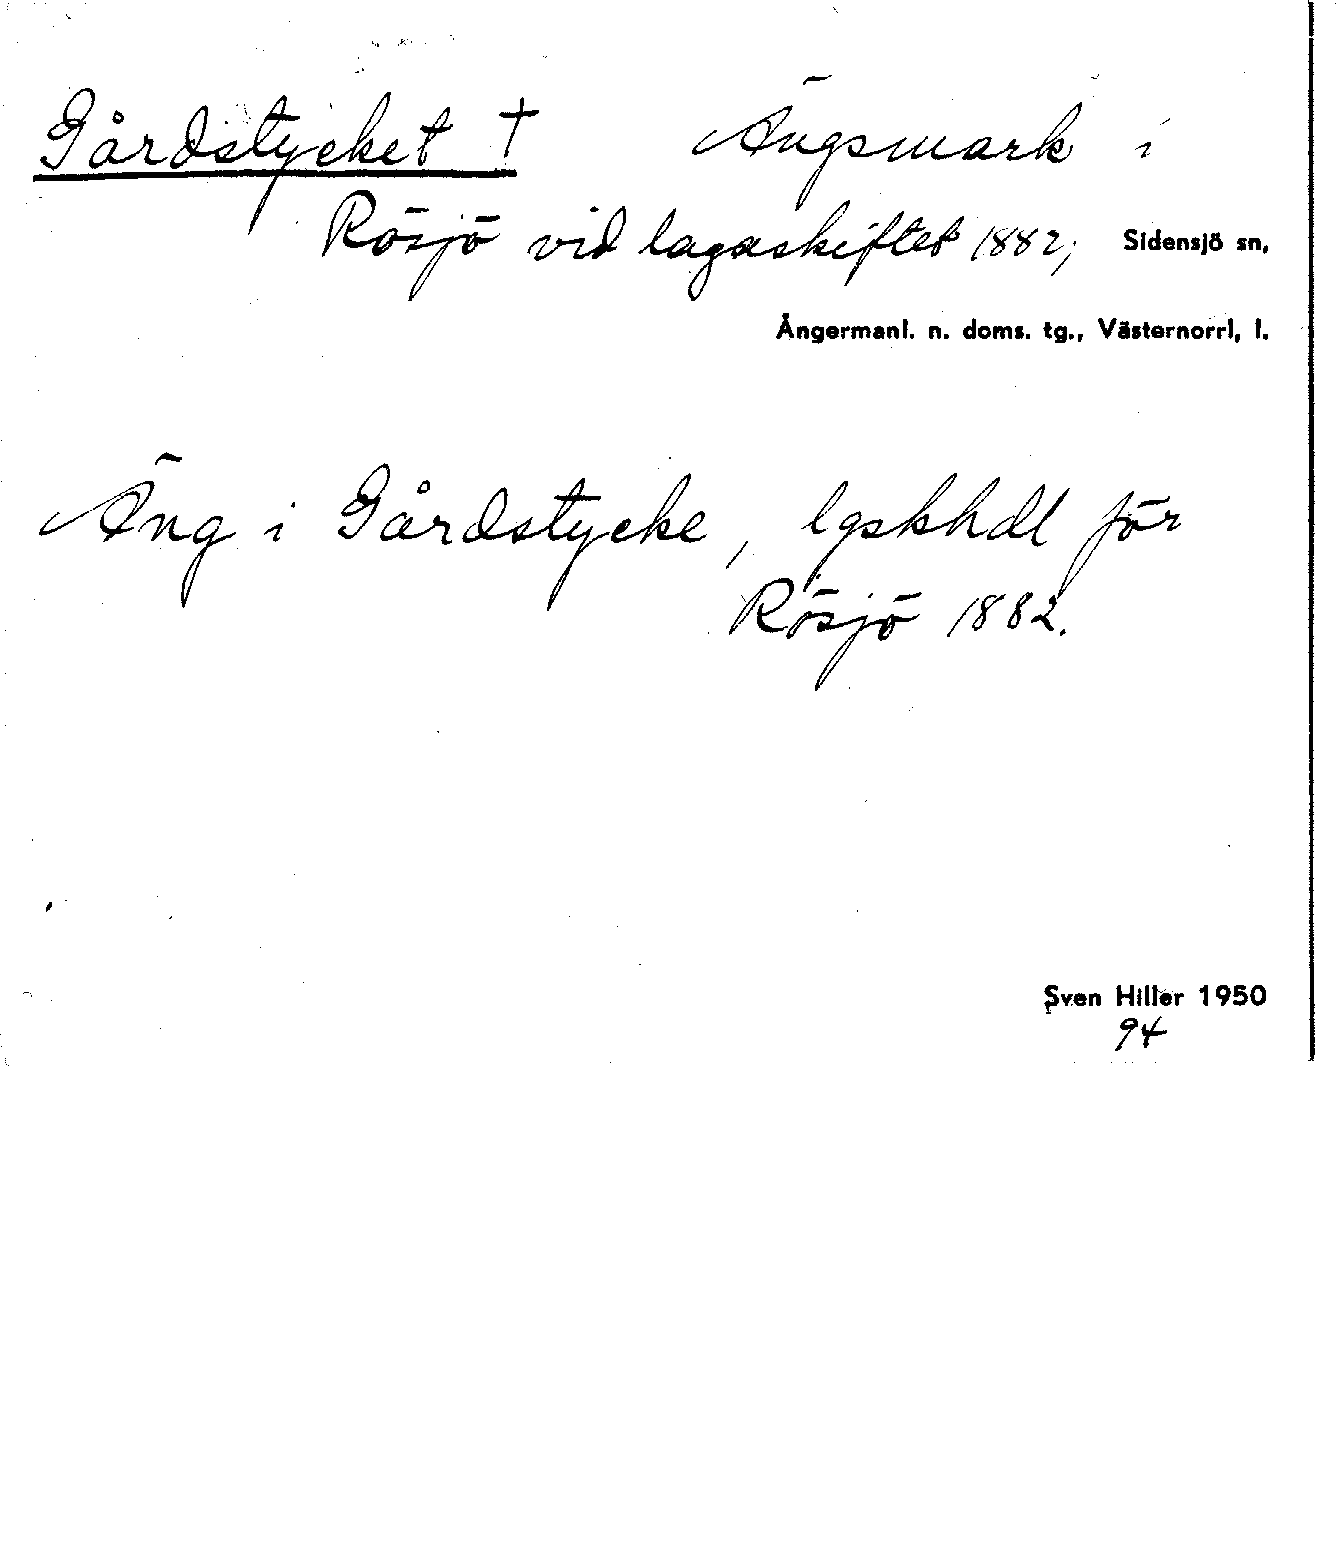 Gårdstycket † Ängsmark i
Rösjö vid lagaskiftet 1882; Sidensjö sn,
Ångermanl. n. doms. tg., Västernorrl, l.
Äng i Gårdstycke, lgskhdl för
Rösjö 1882.
Sven Hiller 1950
94